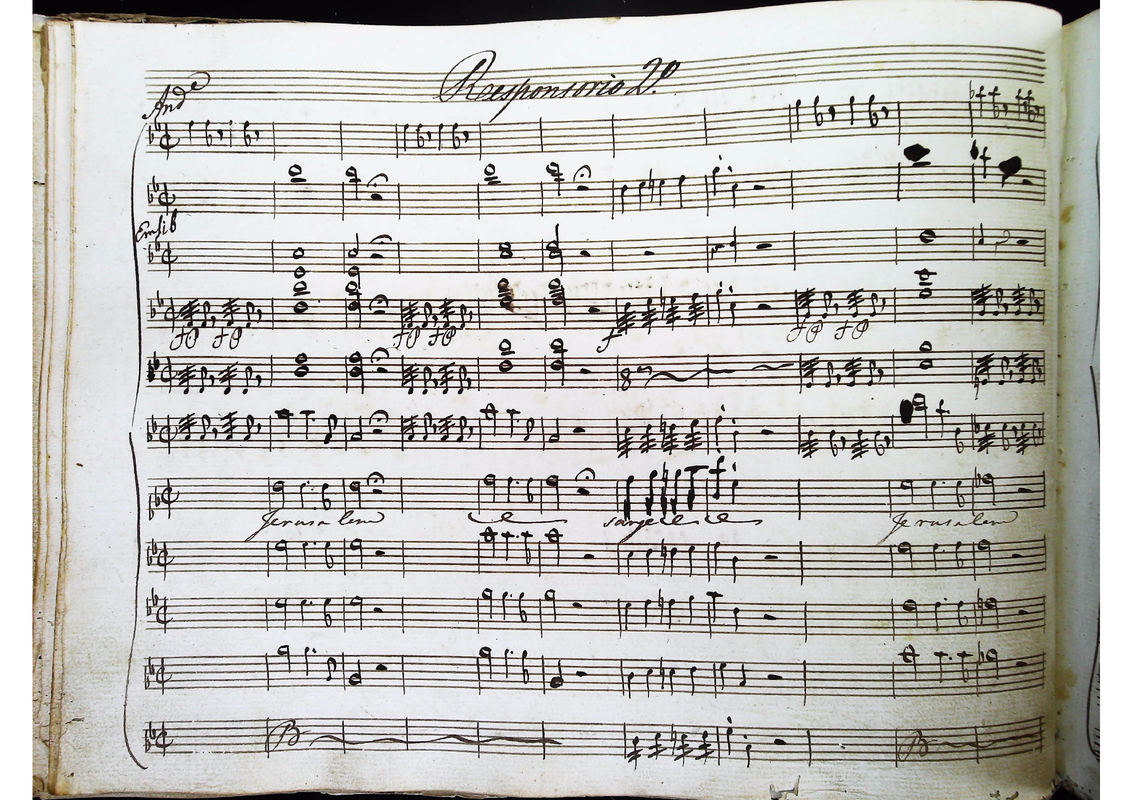 Reesponsorio 2º
Andᵉ
Emsib
fP fP fP fP f fP fP
8ª
Jerusalem surge Jerusalem
B B